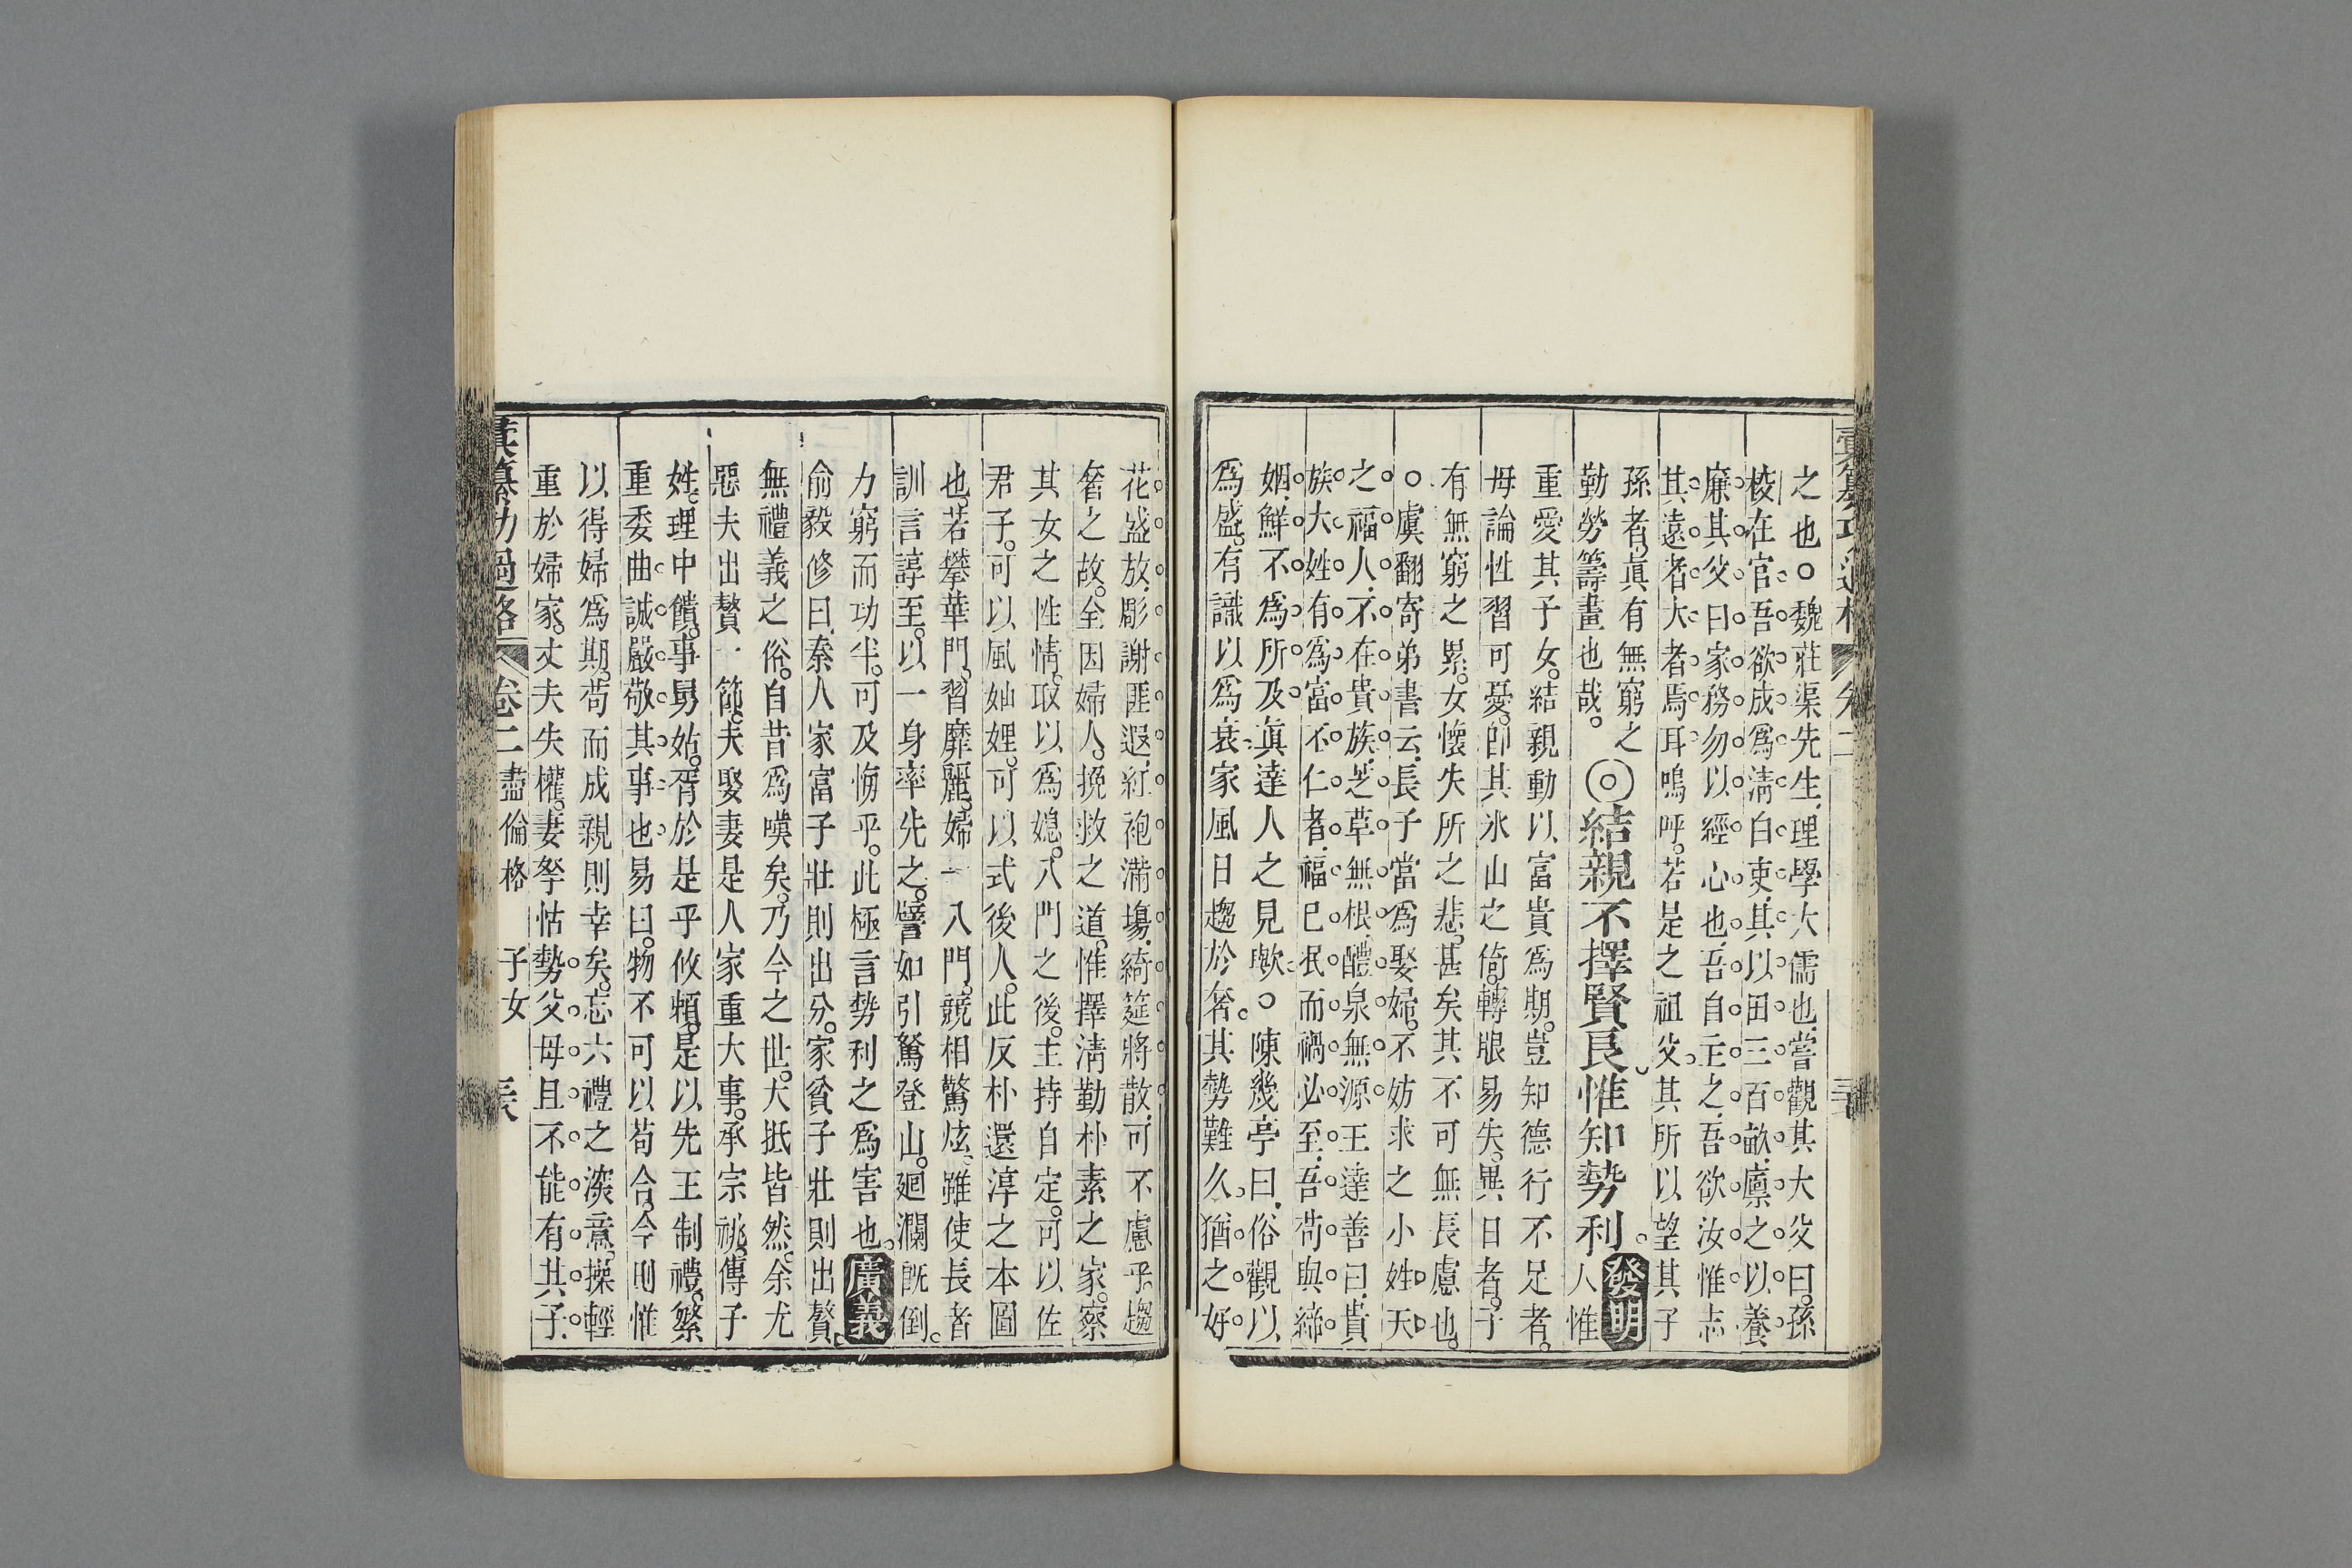 之也○魏莊渠先生理學大儒也嘗觀其大父曰孫
校在官吾欲成爲淸白吏其以田三百畝廩之以養
廉其父曰家務勿以經心也吾自主之吾欲汝惟志
其遠者大者焉耳嗚呼若是之祖父其所以望其子
孫者眞有無窮之
勤勞籌畫也哉
◎結親不擇賢良惟知勢利
發明
人惟
重愛其子女結親動以富貴爲期豈知德行不足者
母論性習可憂卽其氷山之倚轉眼易失異日者子
有無窮之累女懷失所之悲甚矣其不可無長慮也
○虞翻寄弟書云長子當爲娶婦不妨求之小姓天
之福人不在貴族芝草無根醴泉無源王達善曰貴
族大姓有爲富不仁者福已泯而禍必至吾苟與締
姻鮮不爲所及眞達人之見歟○陳幾亭曰俗觀以
爲盛有識以爲衰家風日趨於奢其勢難久猶之好
花盛放彫謝匪遐紅袍滿場綺筵將散可不慮乎趨
奢之故全因婦人挽救之道惟擇淸勤朴素之家察
其女之性情取以爲媳入門之後主持自定可以佐
君子可以風妯娌可以式後人此反朴還淳之本圖
也若攀華門習靡麗婦一入門競相驚炫雖使長者
訓言諄至以一身率先之譬如引鶩登山廻瀾旣倒
力窮而功半可及悔乎此極言勢利之爲害也
廣義
俞毅修曰秦人家富子壯則出分家貧子壯則出贅
無禮義之俗自昔爲嘆矣乃今之世大抵皆然余尤
惡夫出贅一節夫娶妻是人家重大事承宗祧傳子
姓理中饋事舅姑胥於是乎攸賴是以先王制禮繁
重委曲誠嚴敬其事也易曰物不可以苟合今則惟
以得婦爲期苟而成親則幸矣忘六禮之深意操輕
重於婦家丈夫失權妻孥怙勢父母且不能有其子
彙纂功過格 卷二盡倫格 子女